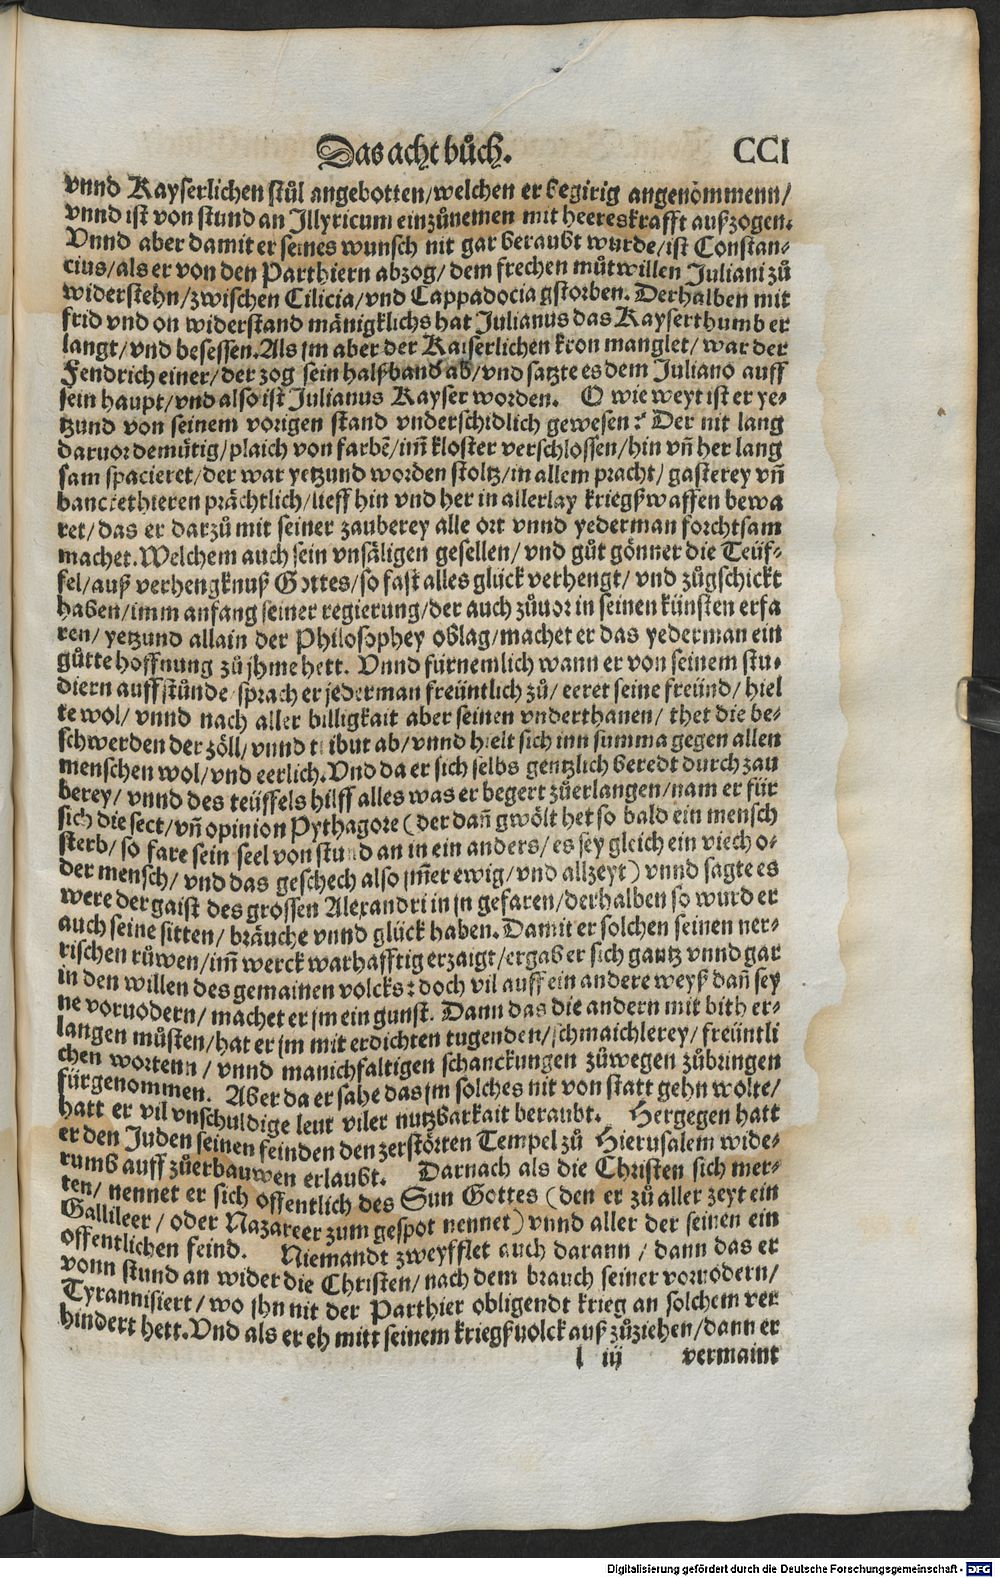 Das acht bůch. CCI
vnnd Kayserlichen stůl angebotten/welchen er begirig angenommenn/
vnnd ist von stund an Illyricum einzůnemen mit heereskrafft außzogen.
Vnnd aber damit er seines wunsch nit gar beraubt wurde/ist Constan⸗
cius/als er von den Parthiern abzog/dem frechen můtwillen Juliani zů
widerstehn/zwischen Cilicia/vnd Cappadocia gstorben. Derhalben mit
frid vnd on widerstand mänigklichs hat Julianus das Kayserthumb er
langt/vnd besessen. Als jm aber der Kaiserlichen kron manglet/war der
Fendrich einer/der zog sein halßband ab/vnd satzte es dem Juliano auff
sein haupt/vnd also ist Julianus Kayser worden. O wie weyt ist er ye⸗
tzund von seinem vorigen stand vnderschidlich gewesen? Der nit lang
daruor demütig/plaich von farbē/im̄ kloster verschlossen/hin vn̄ her lang
sam spacieret/der war yetzund worden stoltz/in allem pracht/gasterey vn̄
banckethieren prächtlich/lieff hin vnd her in allerlay kriegßwaffen bewa
ret/das er darzů mit seiner zauberey alle ort vnnd yederman forchtsam
machet. Welchem auch sein vnsäligen gesellen/vnd gůt gönner die Teüf⸗
fel/auß verhengknuß Gottes/so fast alles glück verhengt/vnd zůgschickt
haben/imm anfang seiner regierung/der auch zůuor in seinen künsten erfa
ren/yetzund allain der Philosophey oblag/machet er das yederman ein
gůtte hoffnung zů jhme hett. Vnnd fürnemlich wann er von seinem stu⸗
diern auffstůnde/sprach er jederman freüntlich zů/eeret seine freünd/hiel
te wol/vnnd nach aller billigkait aber seinen vnderthanen/thet die be⸗
schwerden der zöll/vnnd tribut ab/vnnd hielt sich inn summa gegen allen
menschen wol/vnd eerlich. Vnd da er sich selbs gentzlich beredt durch zau
berey/vnnd des teüffels hilff alles was er begert zůerlangen/nam er für
sich die sect/vn̄ opinion Pythagore (der dan̄ gwölt het so bald ein mensch
sterb/so fare sein seel von stund an in ein anders/es sey gleich ein viech o⸗
der mensch/vnd das geschech also jm̄er ewig/vnd allzeyt) vnnd sagte es
were der gaist des grossen Alexandri in jn gefaren/derhalben so wurd er
auch seine sitten/bräuche vnnd glück haben. Damit er solchen seinen ner⸗
rischen růwen/im̄ werck warhafftig erzaigt/ergab er sich gantz vnnd gar
in den willen des gemainen volcks: doch vil auff ein andere weyß dan̄ sey
ne voruodern/machet er jm ein gunst. Dann das die andern mit bith er⸗
langen můsten/hat er jm mit erdichten tugenden/schmaichlerey/freüntli
chen wortenn/vnnd manichfaltigen schanckungen zůwegen zůbringen
fürgenommen. Aber da er sahe das jm solches nit von statt gehn wolte/
hatt er vil vnschuldige leut viler nutzbarkait beraubt. Hergegen hatt
er den Juden seinen feinden den zerstörten Tempel zů Hierusalem wide⸗
rumb auff zůerbauwen erlaubt. Darnach als die Christen sich mer⸗
ten/nennet er sich offentlich des Sun Gottes (den er zů aller zeyt ein
Gallileer/oder Nazareer zum gespot nennet) vnnd aller der seinen ein
offentlichen feind. Niemandt zweyfflet auch darann/dann das er
vonn stund an wider die Christen/nach dem brauch seiner vorvodern/
Tyrannisiert/wo jhn nit der Parthier obligendt krieg an solchem ver
hindert hett. Vnd als er eh mitt seinem kriegßuolck auß zůziehen/dann er
l iij vermaint
Digitalisierung gefördert durch die Deutsche Forschungsgemeinschaft - DFG